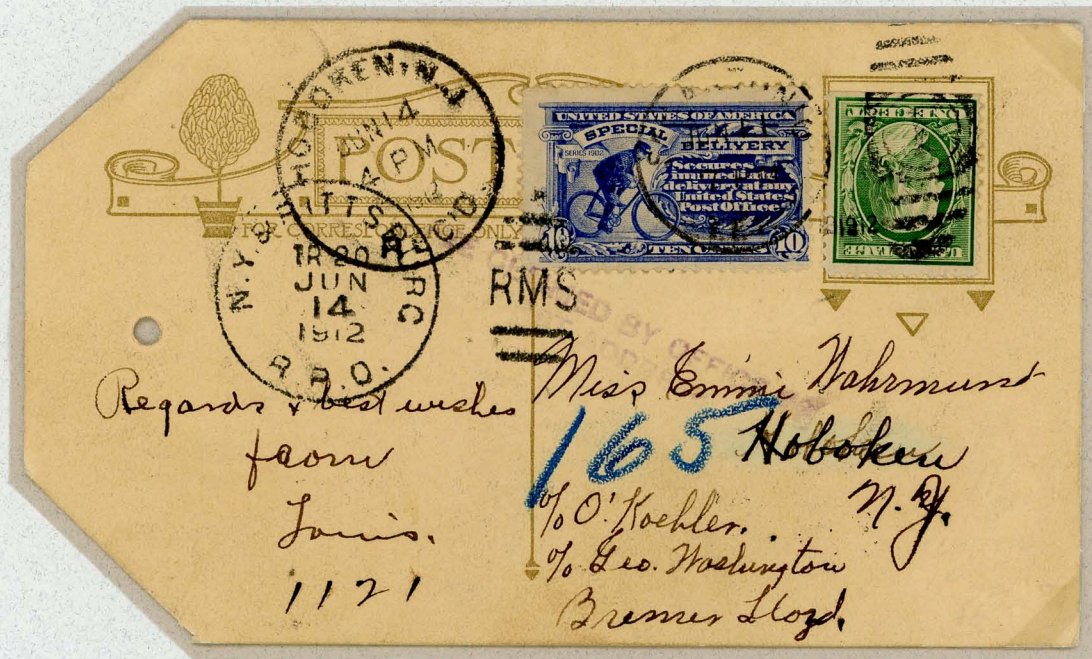 HOBOKEN, N.J.
JUN 14
4 PM
REC'D.
POST
FOR CORRESPONDENCE ONLY
N.Y. & PITTSBURG
TR 20
JUN
14
1912
R.P.O.
RMS
UNITED STATES OF AMERICA
SPECIAL
DELIVERY
SERIES 1902
Secures
immediate
delivery at any
United States
Post Office
10 TEN CENTS 10
1912
BY
Regards & best wishes
from
Louis.
1121
Miss Emmi Wahrmund
165
Hoboken
N.
c/o O. Koehler.
c/o Geo. Washington
Bremer Lloyd.